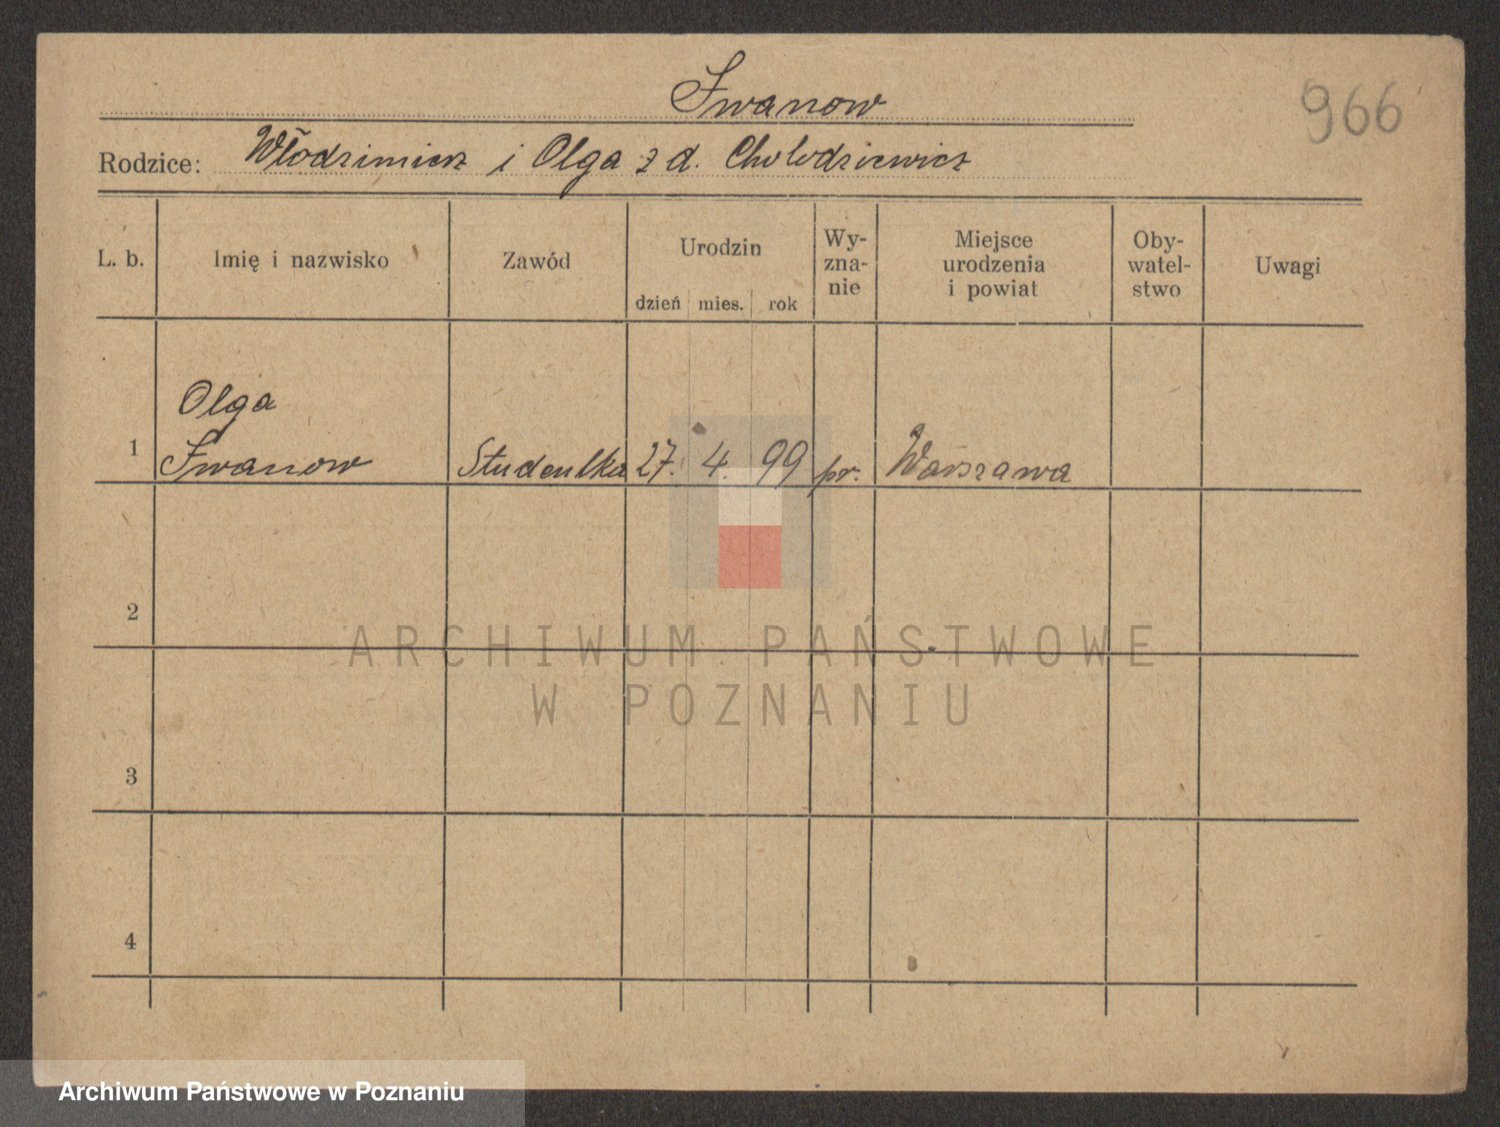 Iwanow
966
Rodzice: Włodzimierz i Olga z d. Chołodziewicz
L. b. Imię i nazwisko Zawód Urodzin Wy-zna-nie Miejsce urodzenia i powiat Oby-watel-stwo Uwagi
dzień mies. rok
Olga
1 Iwanow Studentka 27. 4. 99 pr. Warszawa
2
ARCHIWUM PAŃSTWOWE
W POZNANIU
3
4
Archiwum Państwowe w Poznaniu